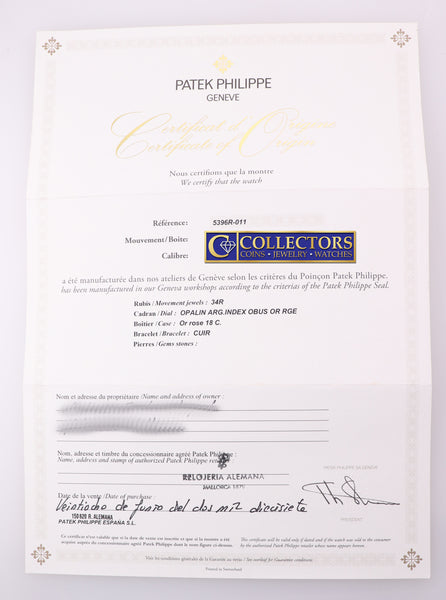 PATEK PHILIPPE
GENEVE
Certificat d'Origine
Certificate of Origin
Nous certifions que la montre
We certify that the watch
Référence: 5396R-011
Mouvement/Boîte:
Calibre:
C COLLECTORS
COINS · JEWELRY · WATCHES
a été manufacturée dans nos ateliers de Genève selon les critères du Poinçon Patek Philippe.
has been manufactured in our Geneva workshops according to the criterias of the Patek Philippe Seal.
Rubis / Movement jewels : 34R
Cadran / Dial : OPALIN ARG.INDEX OBUS OR RGE
Boîtier / Case : Or rose 18 C.
Bracelet / Bracelet : CUIR
Pierres / Gems stones :
Nom et adresse du propriétaire / Name and address of owner :
Nom, adresse et timbre du concessionnaire agréé Patek Philippe :
Name, address and stamp of authorized Patek Philippe
RELOJERIA ALEMANA
MALLORCA 1879
PATEK PHILIPPE SA GENEVE
Date de la vente / Date of purchase :
Veintiocho de junio del dos mil diecisiete
150620 R. ALEMANA
PATEK PHILIPPE ESPAÑA S.L.
PRESIDENT
Ce certificat n'est valable que si la date de vente est inscrite et que si la montre a été
acquise auprès du concessionnaire agréé Patek Philippe dont le nom figure ci-dessus.
This certificate will be valid only if dated and if the watch was sold to the customer
by the authorized Patek Philippe retailer whose name appears herein.
Voir les conditions générales de la Garantie au verso / See overleaf for Guarantee conditions
Printed in Switzerland